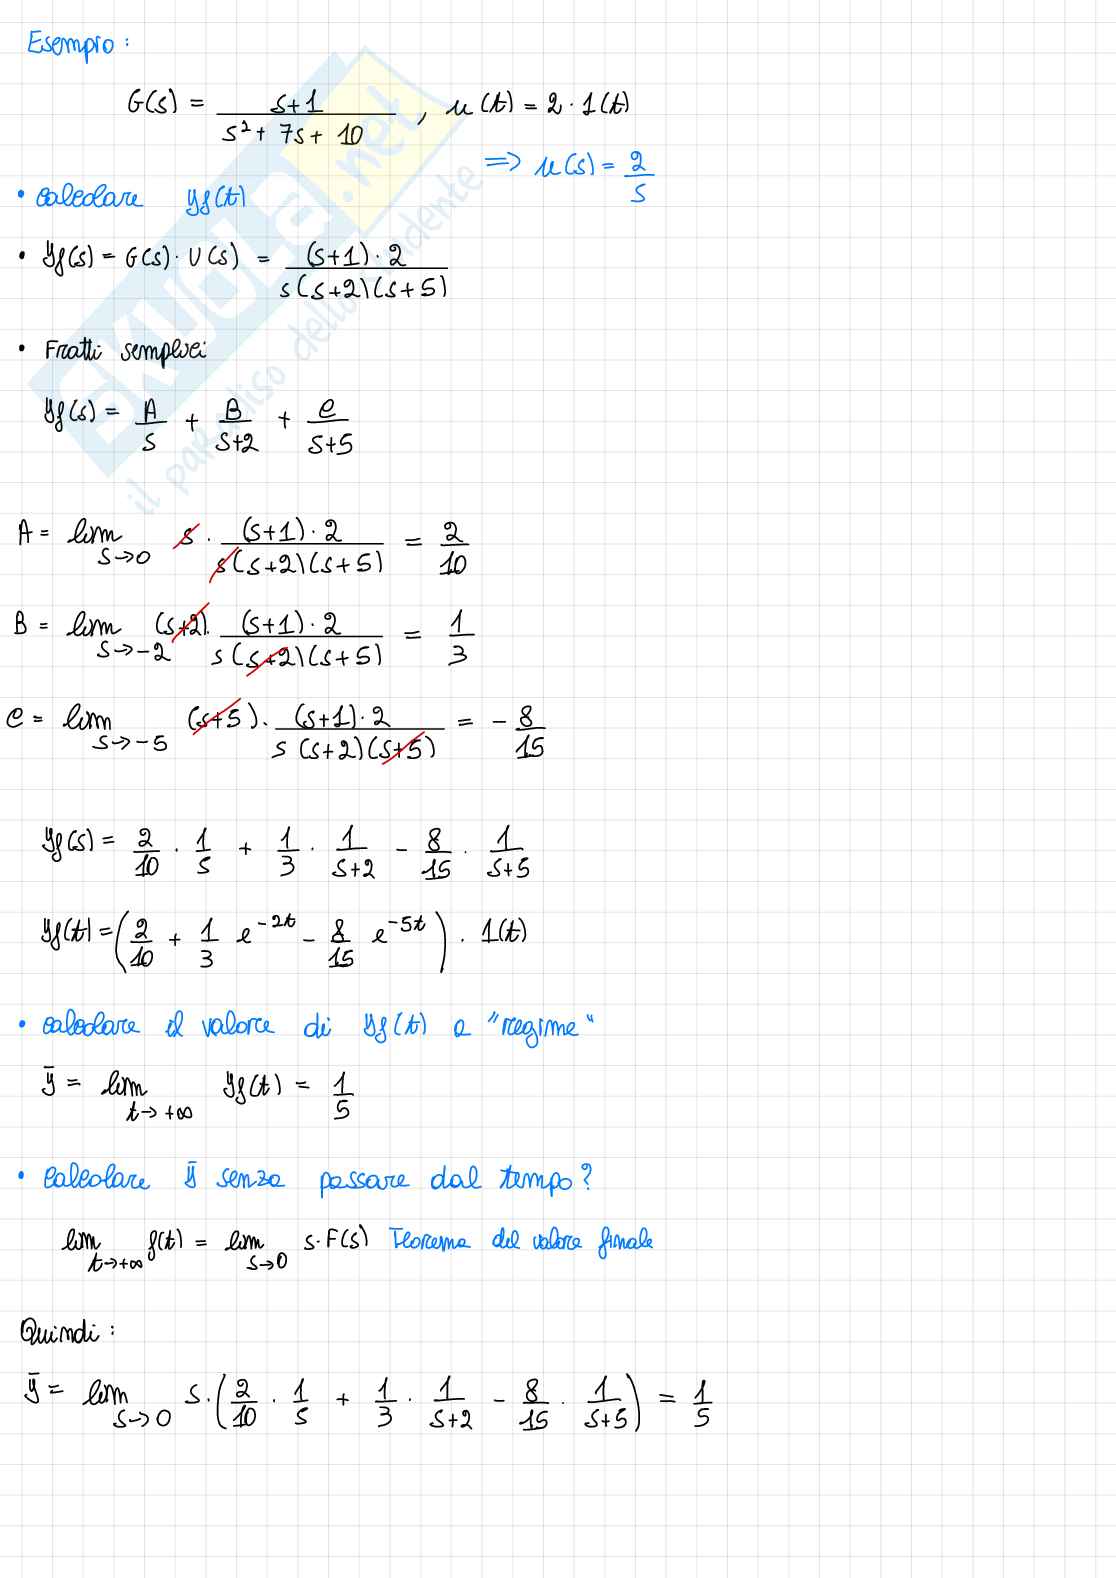 Esempio:
G(s) = (s+1)/(s² + 7s + 10) , u(t) = 2 · 1(t)
=> u(s) = 2/s
• calcolare yf(t)
• Yf(s) = G(s) · U(s) = (s+1)·2 / s(s+2)(s+5)
• Fratti semplici
Yf(s) = A/s + B/(s+2) + C/(s+5)
A = lim s→0 s · (s+1)·2 / s(s+2)(s+5) = 2/10
B = lim s→-2 (s+2) · (s+1)·2 / s(s+2)(s+5) = 1/3
C = lim s→-5 (s+5) · (s+1)·2 / s(s+2)(s+5) = - 8/15
Yf(s) = 2/10 · 1/s + 1/3 · 1/(s+2) - 8/15 · 1/(s+5)
Yf(t) = (2/10 + 1/3 e^-2t - 8/15 e^-5t) · 1(t)
• calcolare il valore di Yf(t) a "regime"
ȳ = lim t→+∞ Yf(t) = 1/5
• Calcolare ȳ senza passare dal tempo?
lim t→+∞ f(t) = lim s→0 s·F(s) Teorema del valore finale
Quindi:
ȳ = lim s→0 s·(2/10 · 1/s + 1/3 · 1/(s+2) - 8/15 · 1/(s+5)) = 1/5
SKUOLA.net